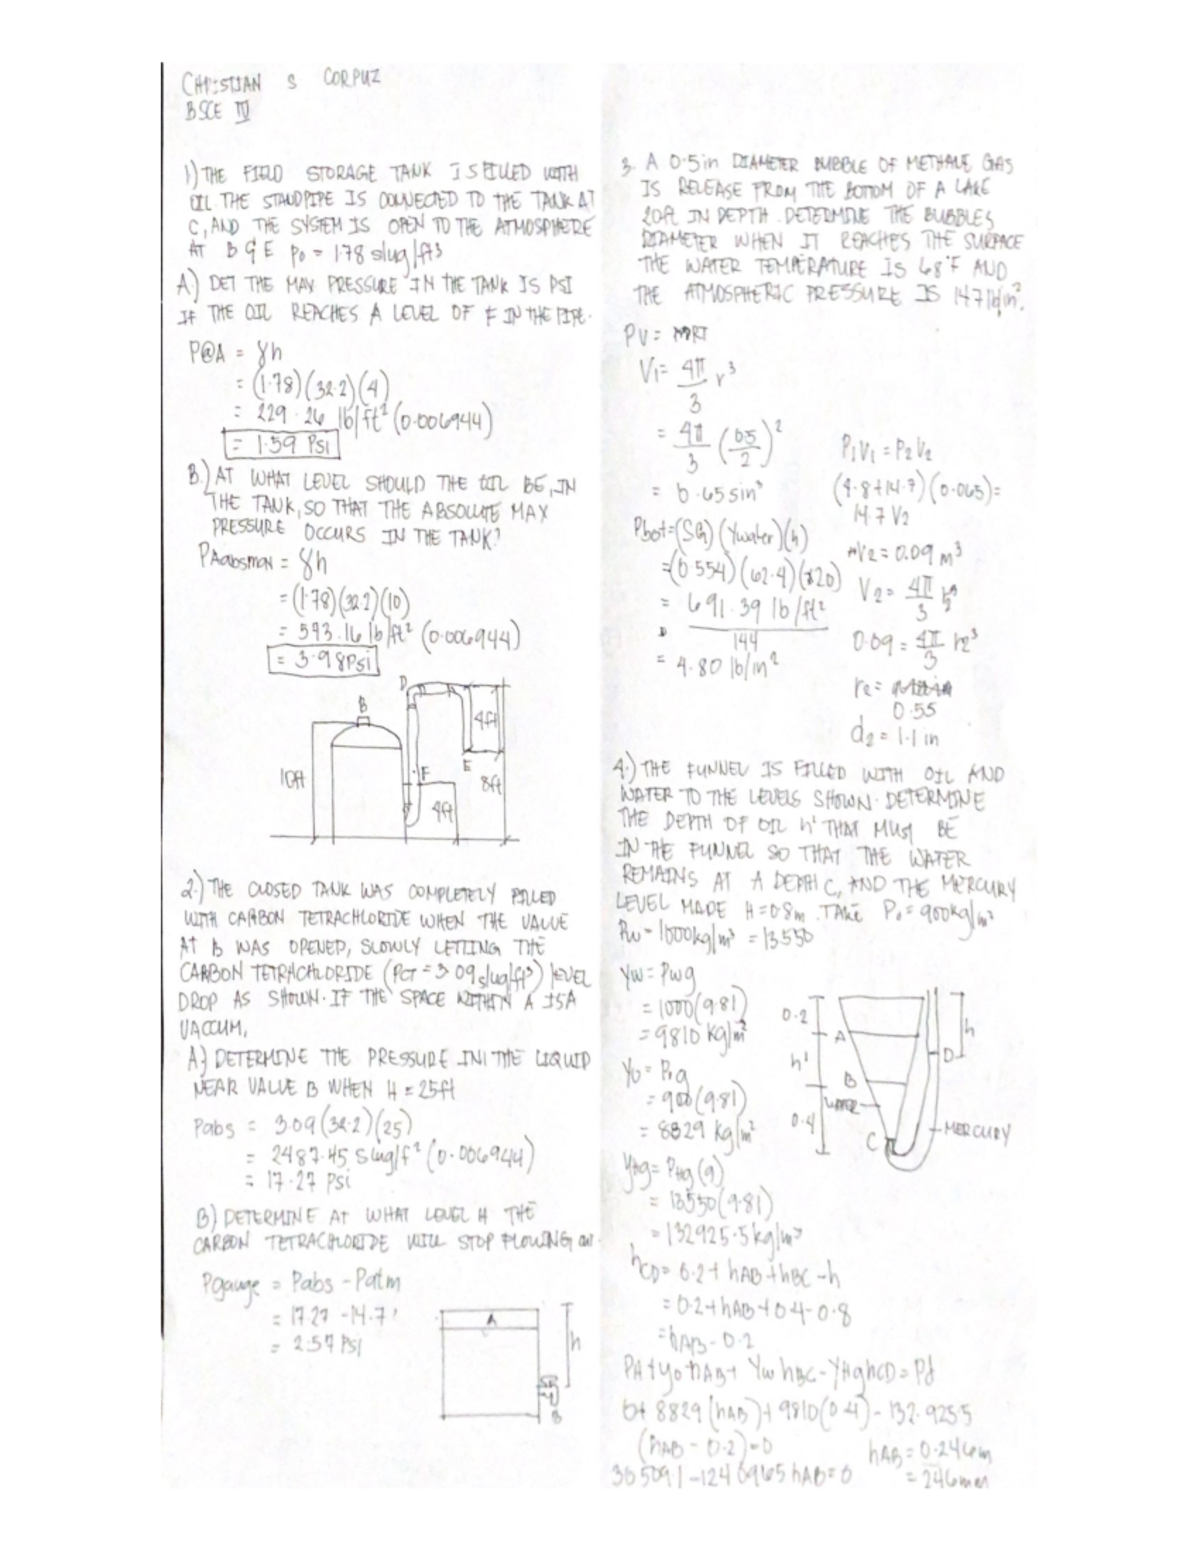 CHRISTIAN S CORPUZ
BSCE IV
1) THE FIELD STORAGE TANK IS FILLED WITH
OIL. THE STANDPIPE IS CONNECTED TO THE TANK AT
C, AND THE SYSTEM IS OPEN TO THE ATMOSPHERE
AT B & E ρo = 1.78 slug/ft³
A) DET THE MAX PRESSURE IN THE TANK IS PSI
IF THE OIL REACHES A LEVEL OF F IN THE PIPE.
P@A = γh
= (1.78)(32.2)(4)
= 229.26 lb/ft² (0.006944)
= 1.59 Psi
B.) AT WHAT LEVEL SHOULD THE OIL BE, IN
THE TANK, SO THAT THE ABSOLUTE MAX
PRESSURE OCCURS IN THE TANK?
PAabsman = γh
= (1.78)(32.2)(10)
= 573.16 lb/ft² (0.006944)
= 3.98 Psi
B
D
E
F
10ft
4ft
4ft
8ft
2.) THE CLOSED TANK WAS COMPLETELY FILLED
WITH CARBON TETRACHLORIDE WHEN THE VALUE
AT B WAS OPENED, SLOWLY LETTING THE
CARBON TETRACHLORIDE (ρCT = 3.09 slug/ft³) LEVEL
DROP AS SHOWN. IF THE SPACE WITHIN A IS A
VACCUM,
A.) DETERMINE THE PRESSURE IN THE LIQUID
NEAR VALUE B WHEN H = 25ft
Pabs = 3.09(32.2)(25)
= 2487.45 slug/f² (0.006944)
= 17.27 psi
B) DETERMINE AT WHAT LEVEL H THE
CARBON TETRACHLORIDE WILL STOP FLOWING
Pgauge = Pabs - Patm
= 17.27 - 14.7
= 2.57 Psi
A
h
B
3. A 0.5in DIAMETER BUBBLE OF METHANE GAS
IS RELEASE FROM THE BOTTOM OF A LAKE
20ft IN DEPTH. DETERMINE THE BUBBLES
DIAMETER WHEN IT REACHES THE SURFACE
THE WATER TEMPERATURE IS 68°F AND
THE ATMOSPHERIC PRESSURE IS 14.7 lb/in².
PV = MRT
V1 = 4π/3 r³
= 4π/3 (0.5/2)²
= 0.65 sin³
Pbot = (SG)(γwater)(h)
= (0.554)(62.4)(20)
= 691.39 lb/ft²
144
= 4.80 lb/in²
P1V1 = P2V2
(4.8+14.7)(0.065) =
14.7 V2
V2 = 0.09 m³
V2 = 4π/3 r³
0.09 = 4π/3 r2³
r2 =
0.55
d2 = 1.1 in
4.) THE FUNNEL IS FILLED WITH OIL AND
WATER TO THE LEVELS SHOWN. DETERMINE
THE DEPTH OF OIL h' THAT MUST BE
IN THE FUNNEL SO THAT THE WATER
REMAINS AT A DEPTH C, AND THE MERCURY
LEVEL MADE H=0.8m. TAKE Po = 900kg/m²
Pw = 1000kg/m³ = 13550
γw = Pwg
= 1000(9.81)
= 9810 kg/m²
γo = Pog
= 900(9.81)
= 8829 kg/m²
γHg = PHg(g)
= 13550(9.81)
= 132925.5 kg/m³
hCD = 0.2 + hAB + hBC - h
= 0.2 + hAB + 0.4 - 0.8
= hAB - 0.2
PA + γo hAB + γw hBC - γHg hCD = Pd
0 + 8829 (hAB) + 9810(0.4) - 132.925.5
(hAB - 0.2) = 0
305091 - 1240965 hAB = 0
hAB = 0.246m
= 246mm
0.2
A
h'
B
WATER
0.4
C
h
D
MERCURY